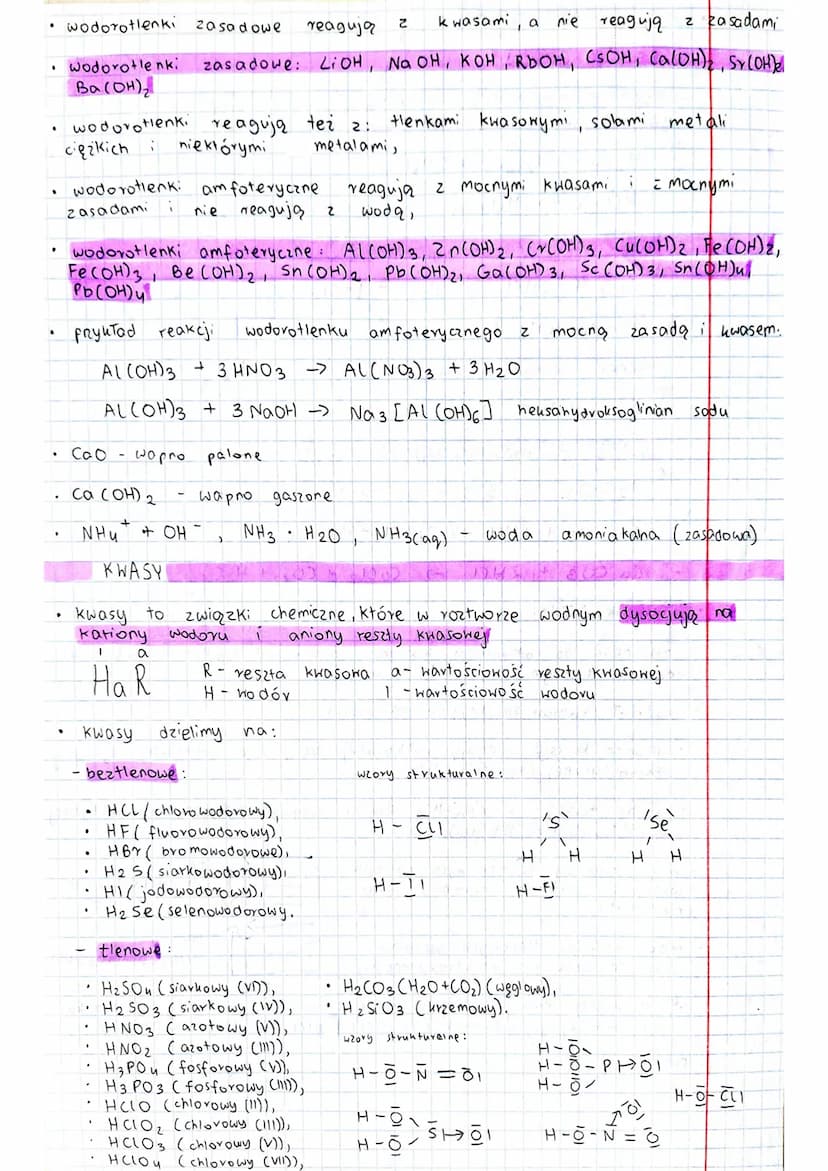 • wodorotlenki zasadowe reagują z kwasami, a nie reagują z zasadami
• wodorotlenki zasadowe: LiOH, NaOH, KOH, RbOH, CsOH, Ca(OH)₂, Sr(OH)₂
Ba(OH)₂
• wodorotlenki reagują też z: tlenkami kwasowymi, solami metali
ciężkich i niektórymi metalami,
• wodorotlenki amfoteryczne reagują z mocnymi kwasami i z mocnymi
zasadami i nie reagują z wodą,
• wodorotlenki amfoteryczne: Al(OH)₃, Zn(OH)₂, Cr(OH)₃, Cu(OH)₂, Fe(OH)₂,
Fe(OH)₃, Be(OH)₂, Sn(OH)₂, Pb(OH)₂, Ga(OH)₃, Sc(OH)₃, Sn(OH)₄,
Pb(OH)₄
• przykład reakcji wodorotlenku amfoterycznego z mocną zasadą i kwasem:
Al(OH)₃ + 3HNO₃ → Al(NO₃)₃ + 3H₂O
Al(OH)₃ + 3NaOH → Na₃[Al(OH)₆] heksahydroksoglinian sodu
• CaO - wapno palone
• Ca(OH)₂ - wapno gaszone
• NH₄⁺ + OH⁻, NH₃ · H₂O, NH₃(aq) - woda amoniakalna (zasadowa)
KWASY
• kwasy to związki chemiczne, które w roztworze wodnym dysocjują na
kationy wodoru i aniony reszty kwasowej
I a
HaR R - reszta kwasowa a - wartościowość reszty kwasowej
H - wodór I - wartościowość wodoru
• kwasy dzielimy na:
- beztlenowe: wzory strukturalne:
• HCl (chlorowodorowy),
• HF (fluorowodorowy),
• HBr (bromowodorowe),
• H₂S (siarkowodorowy),
• HI (jodowodorowy),
• H₂Se (selenowodorowy.
H - Cl
S
H H
Se
H H
H - I
H - F
- tlenowe:
• H₂SO₄ (siarkowy (VI)),
• H₂SO₃ (siarkowy (IV)),
• HNO₃ (azotowy (V)),
• HNO₂ (azotowy (III)),
• H₃PO₄ (fosforowy (V)),
• H₃PO₃ (fosforowy (III)),
• HClO (chlorowy (I)),
• HClO₂ (chlorowy (III)),
• HClO₃ (chlorowy (V)),
• HClO₄ (chlorowy (VII)),
• H₂CO₃ (H₂O+CO₂) (węglowy),
• H₂SiO₃ (krzemowy).
wzory strukturalne:
H - O - N = O
H - O
H - O - P → O
H - O
H - O - Cl
H - O
H - O S → O
O
H - O - N = O